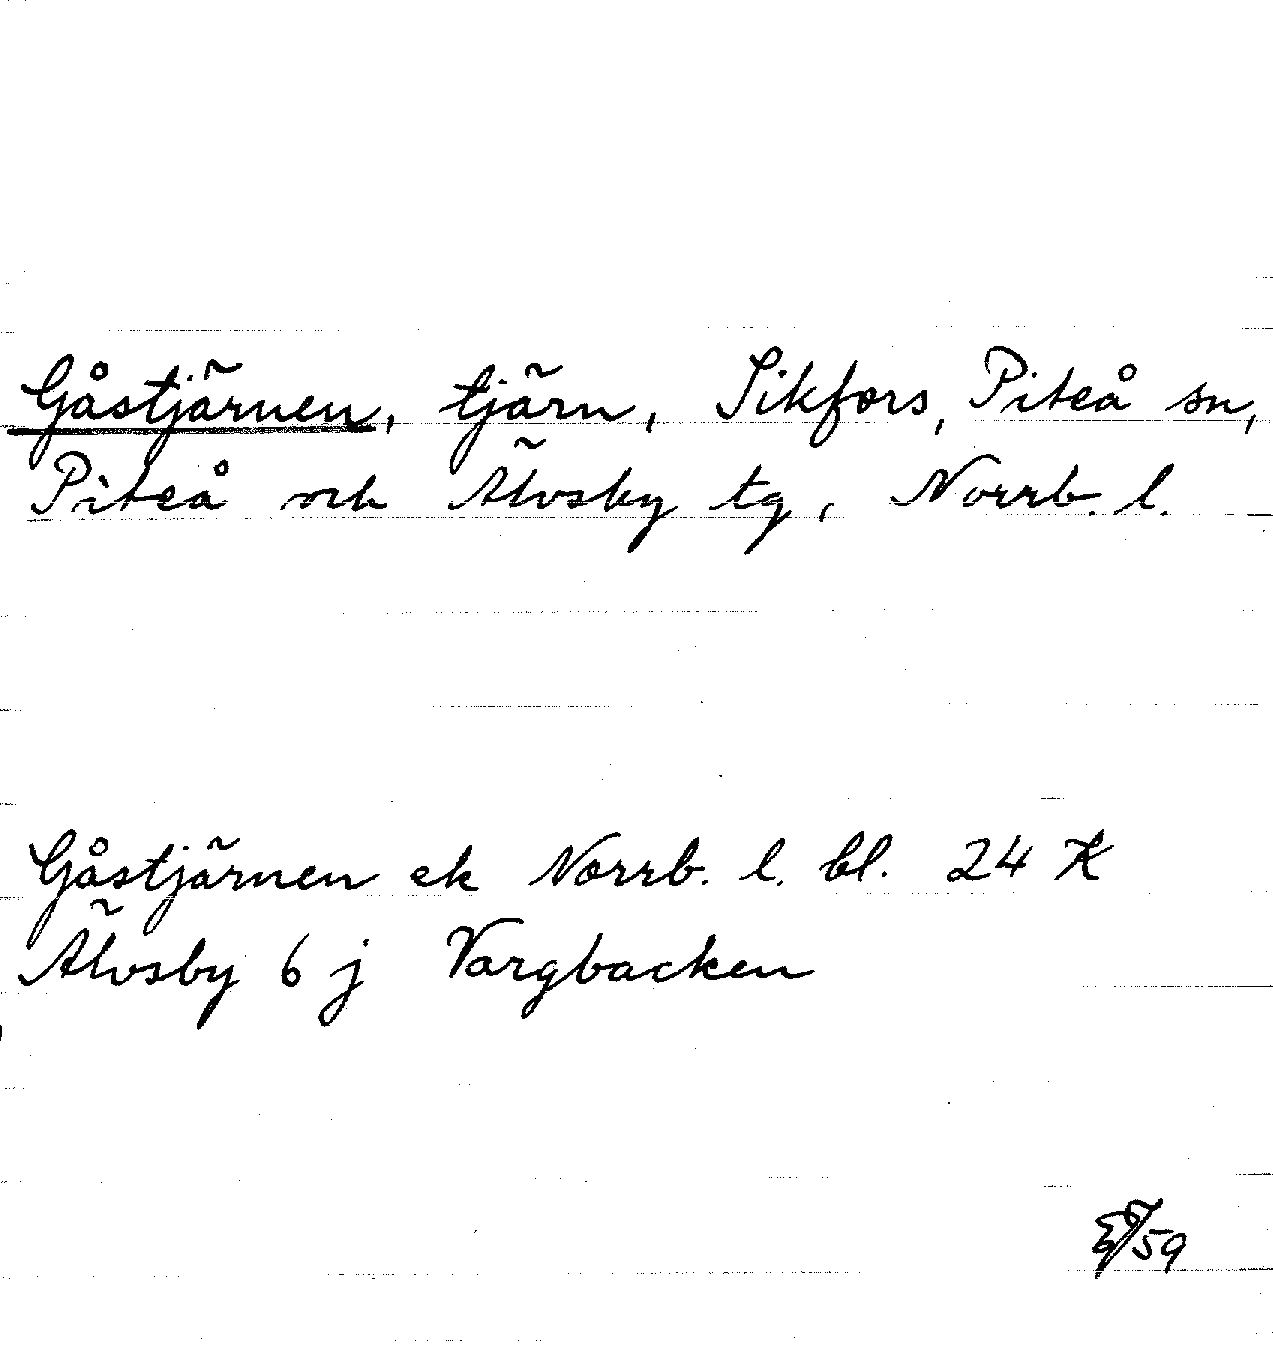 Gåstjärnen, tjärn, Sikfors, Piteå sn,
Piteå och Älvsby tg, Norrb. l.
Gåstjärnen ek Norrb. l. bl. 24 K
Älvsby 6 j Vargbacken
/59